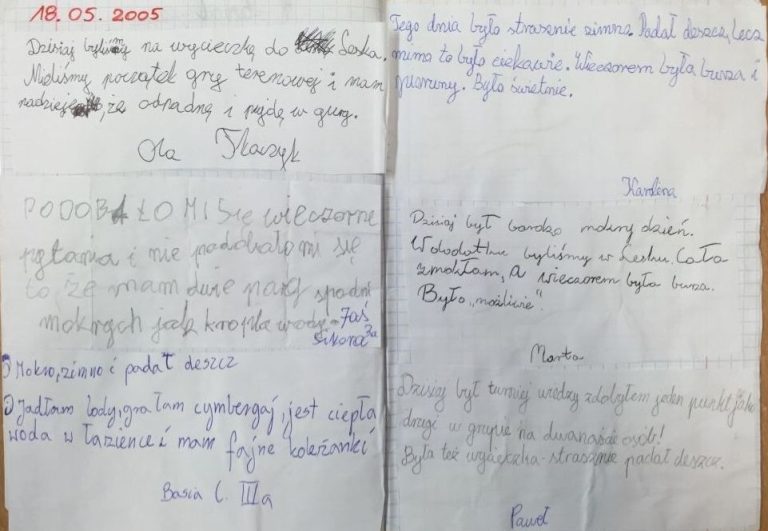 18.05.2005
Dzisiaj byliśmy na wycieczkę do Leska.
Mieliśmy początek gry terenowej i mam
nadzieję, że odpadnę i pójdę w góry.
Ola Tkaczyk
PODOBAŁO MI Się wieczorne
pytania i nie podobało mi się
to, że mam dwie pary spodni
mokrych jak kropla wody. Jaś
Sikora 3a
1) Mokro, zimno i padał deszcz
2) Jadłam lody, grałam cymbergaj, jest ciepła
woda w łazience i mam fajne koleżanki
Basia C. III a
Tego dnia było strasznie zimno. Padał deszcz, Lecz
mimo to było ciekawie. Wieczorem była burza i
pioruny. Było świetnie.
Karolina
Dzisiaj był bardzo nudny dzień.
W dodatku byliśmy w Lesku. Cała
zmokłam, a wieczorem była burza.
Było „możliwie".
Marta
Dzisiaj był turniej wiedzy zdobyłem jeden punkt jako
drugi w grupie na dwanaście osób!
Była też wycieczka - strasznie padał deszcz.
Paweł